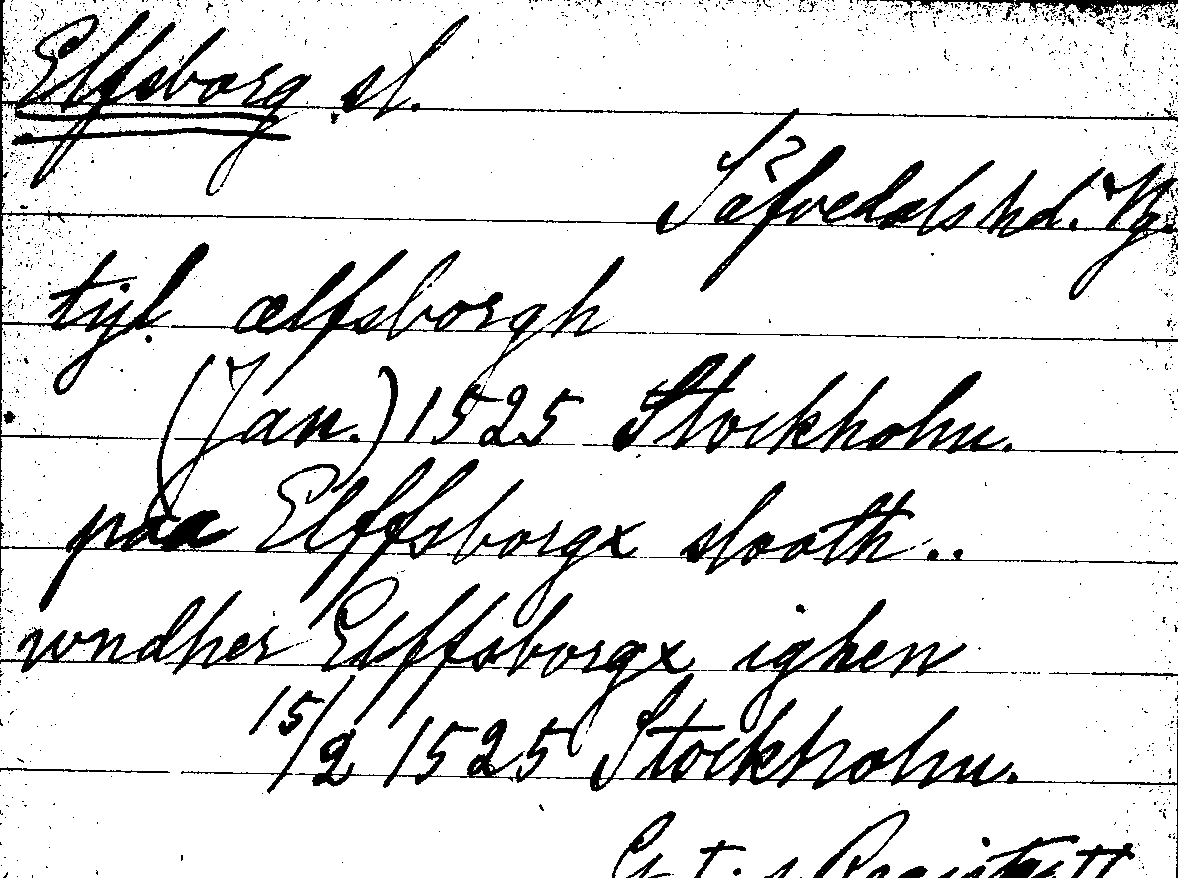 Elfsborg sl.
Säfvedals hd. Vg.
tijl ælfsborgh
(Jan.) 1525 Stockholm.
paa Elffsborgx slooth..
wndher Elffsborgx ighen
15/2 1525 Stockholm.
G. I:s Registratt